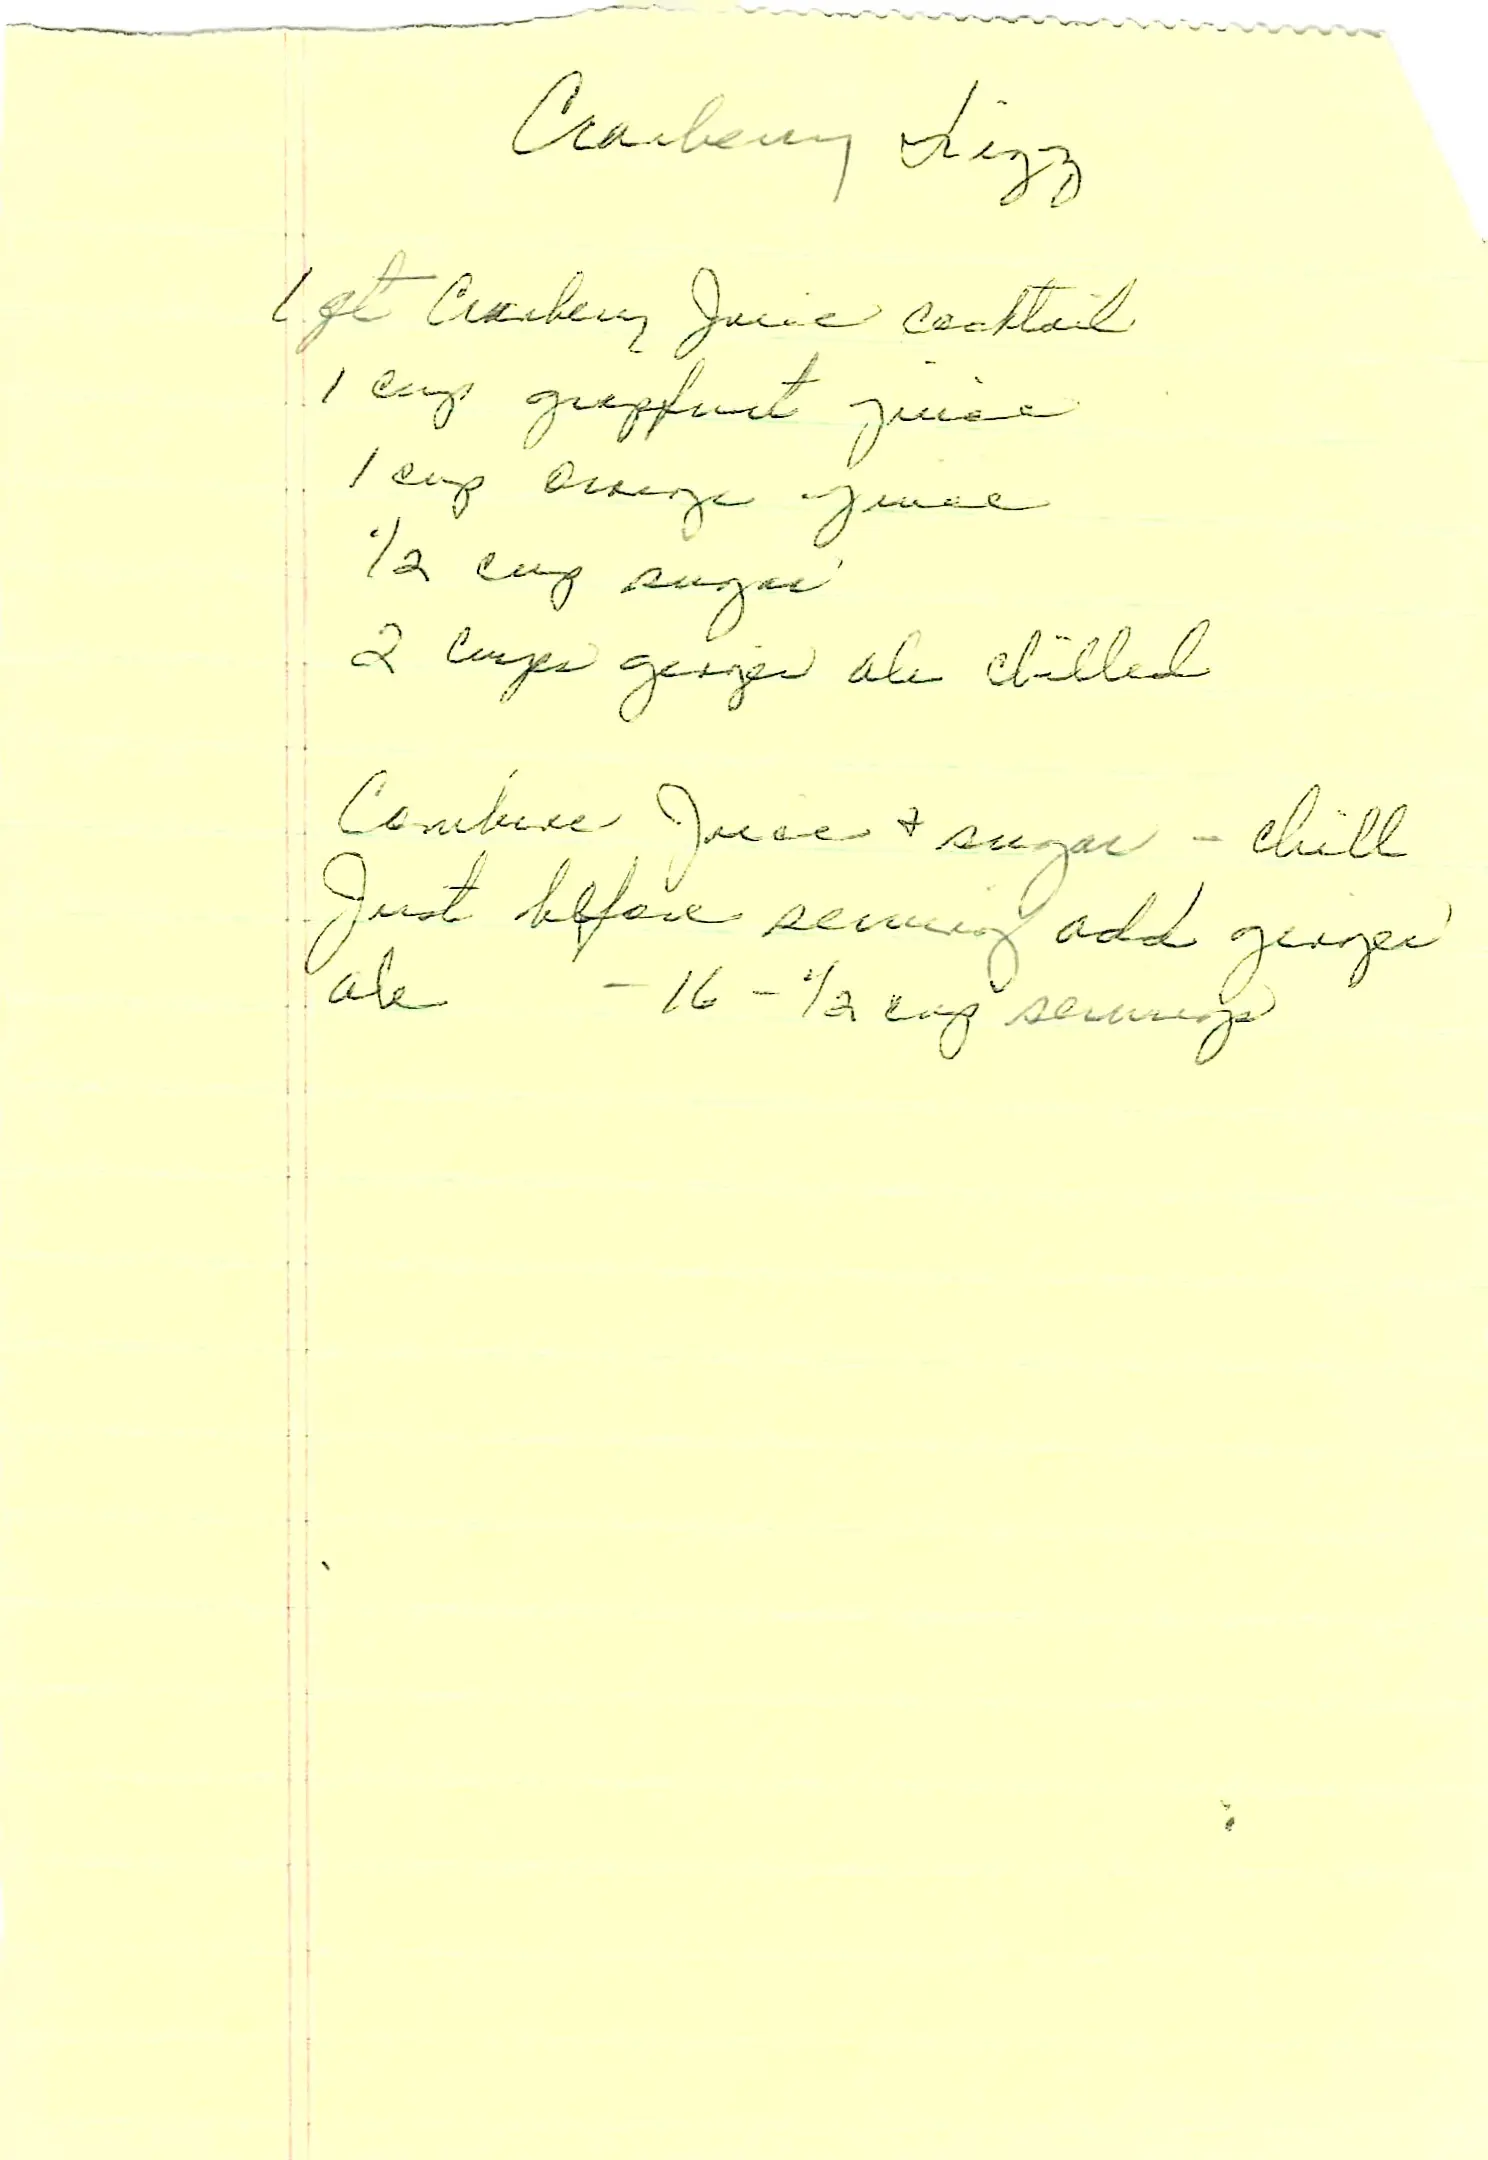 Cranberry Fizz
1 qt Cranberry Juice cocktail
1 cup grapfruit juice
1 cup orange juice
1/2 cup sugar
2 cups ginger ale chilled
Combine Juice & sugar - chill
Just before serving add ginger
ale - 16 - 1/2 cup servings